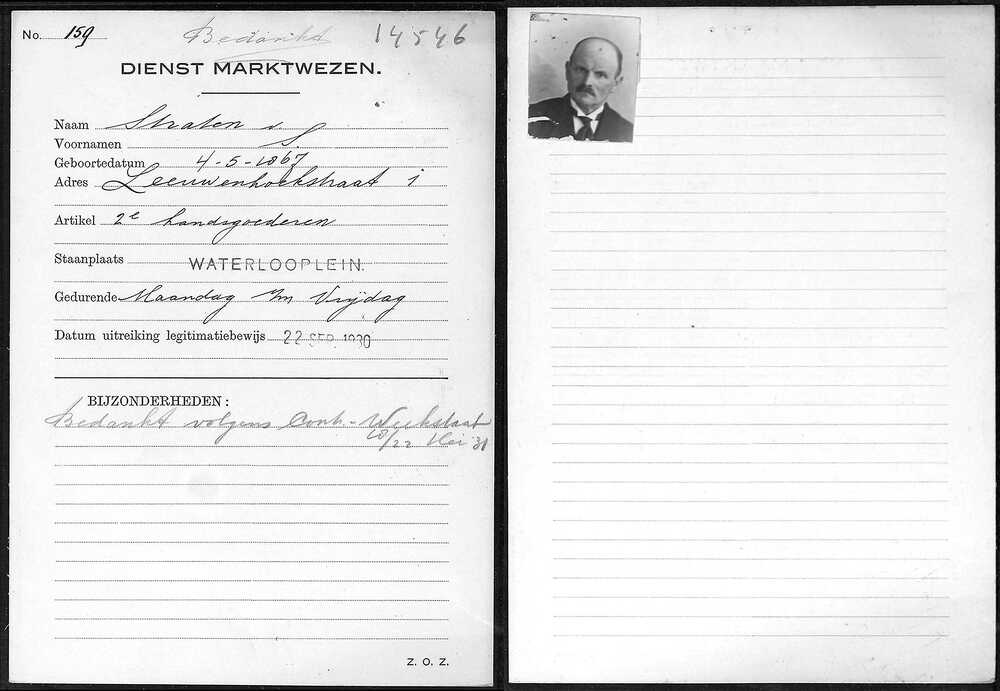 No. 159 Bedankt 14546
DIENST MARKTWEZEN.
Naam Straten v
Voornamen S.
Geboortedatum 4-5-1867
Adres Leeuwenhoekstraat 1
Artikel 2e handsgoederen
Staanplaats WATERLOOPLEIN.
Gedurende Maandag t/m Vrijdag
Datum uitreiking legitimatiebewijs 22 SEP. 1930
BIJZONDERHEDEN:
Bedankt volgens Contr.-Weekstaat
18/22 Mei 31
Z. O. Z.